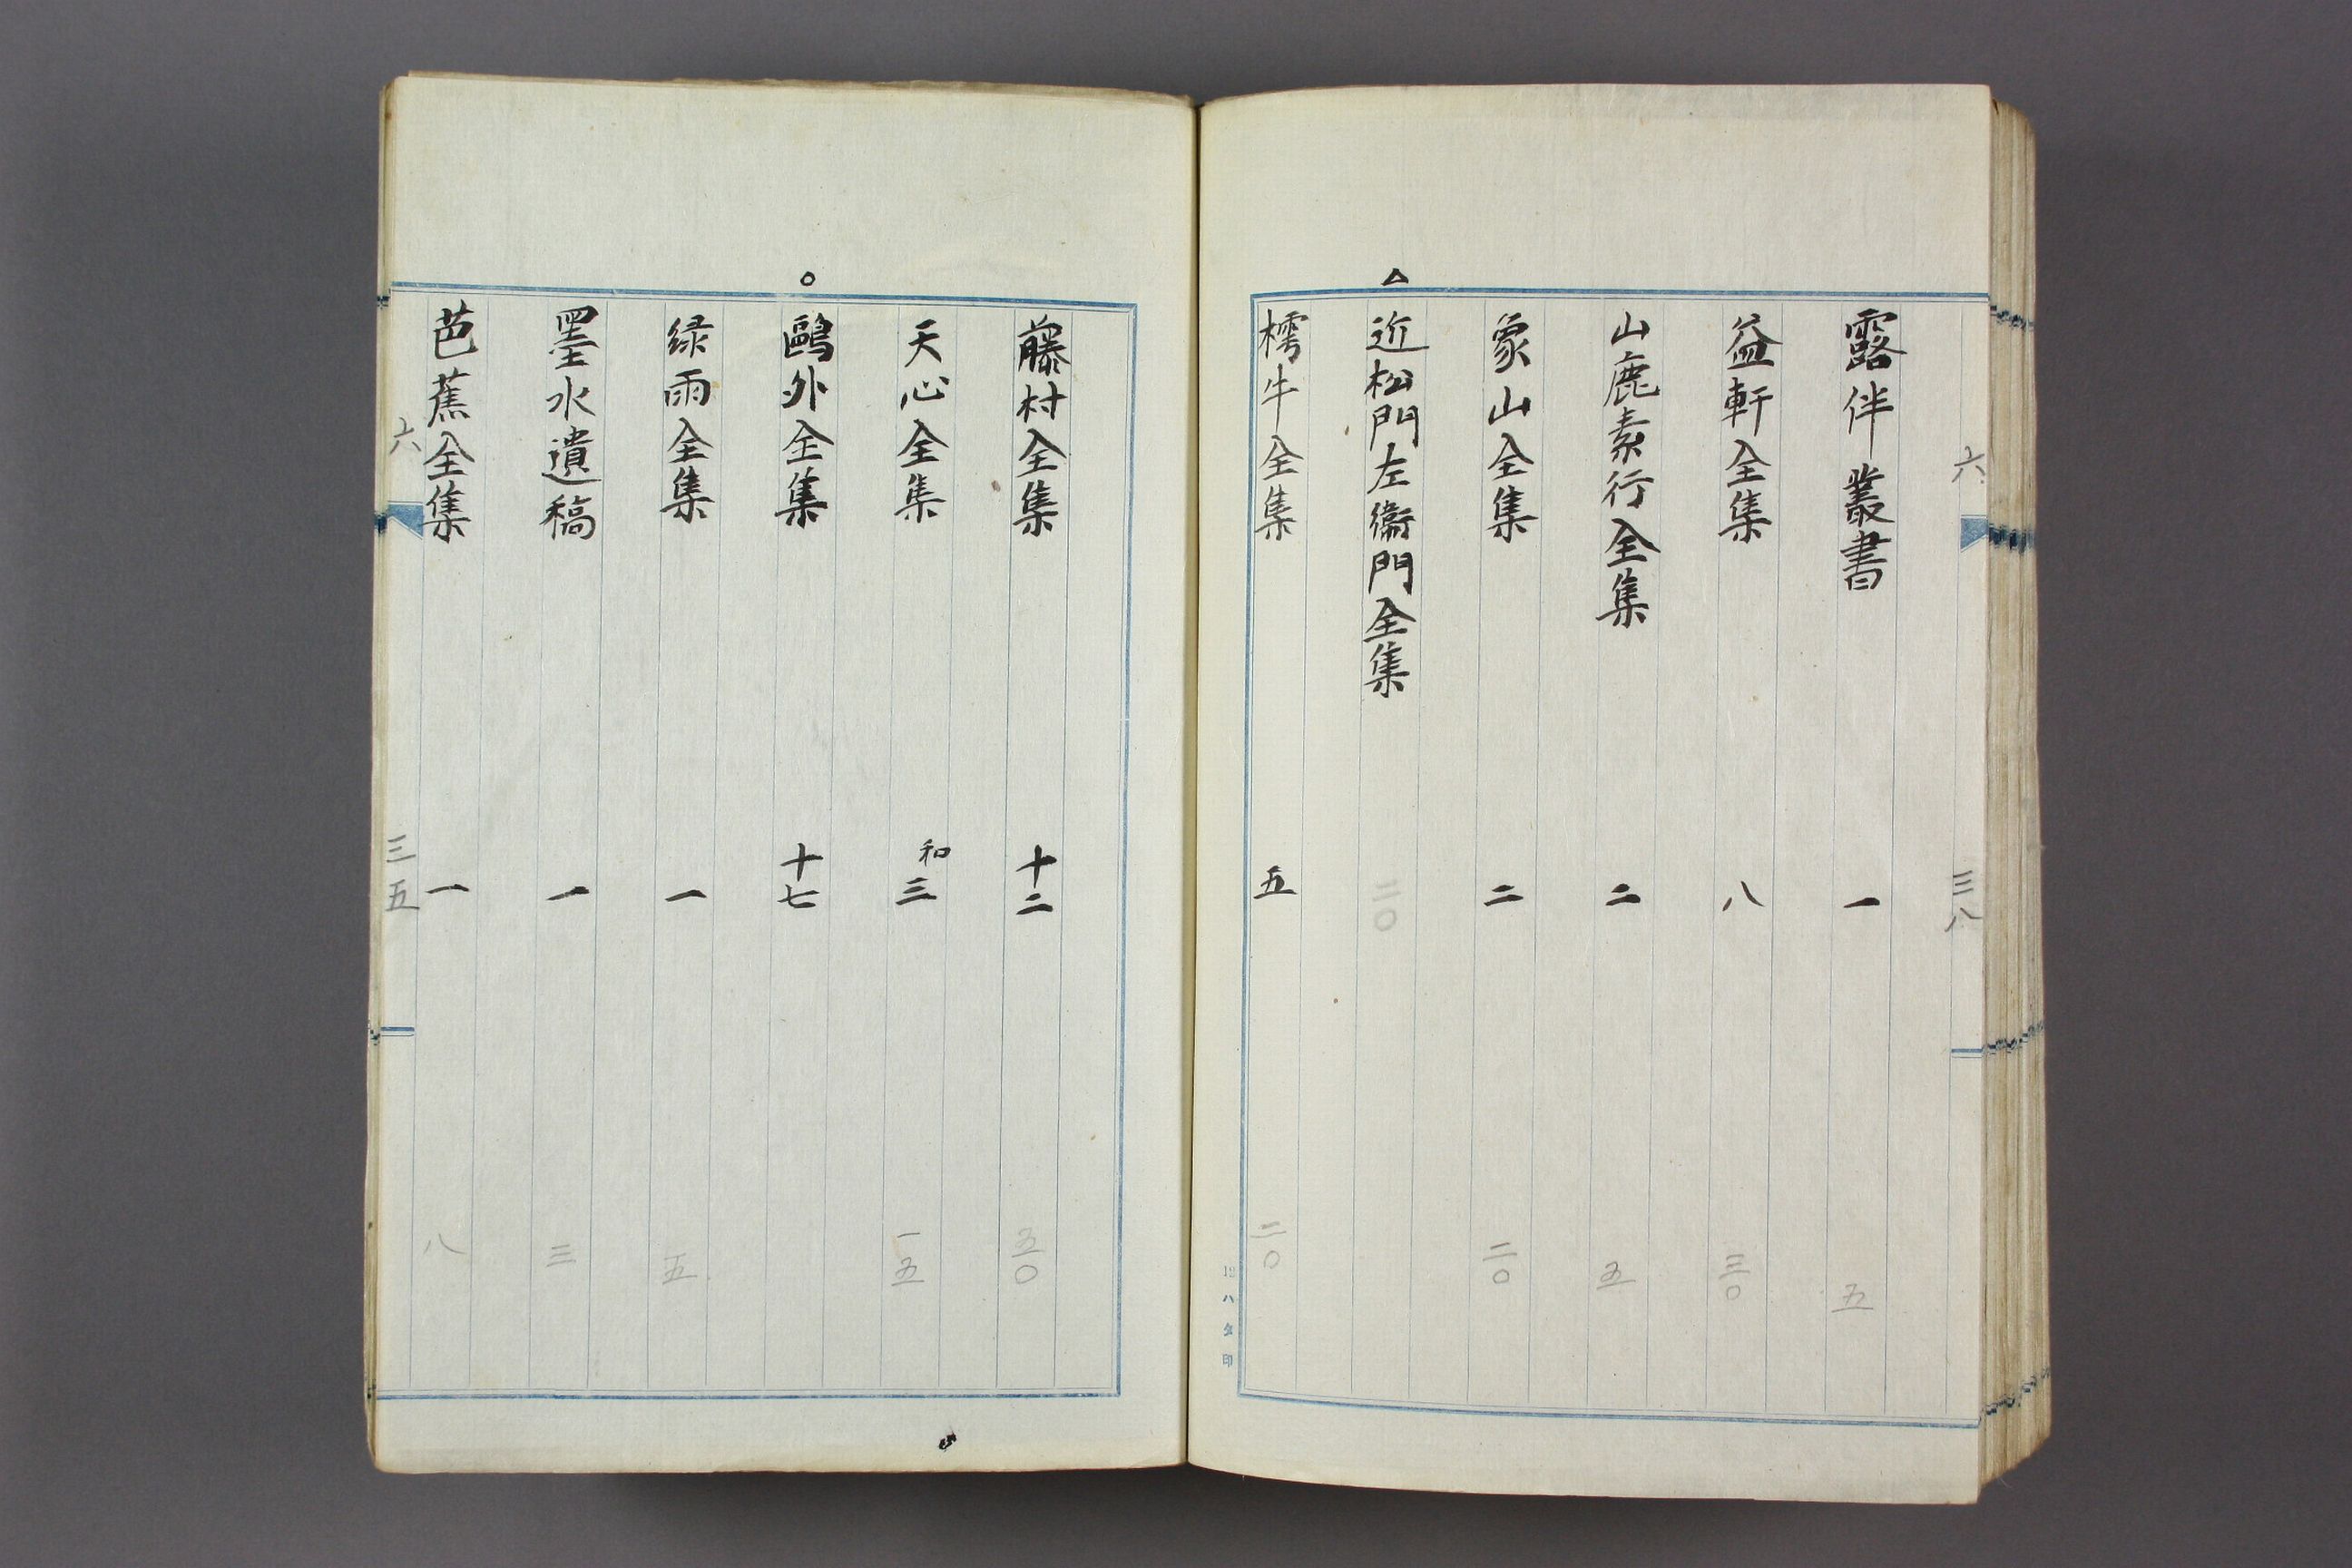 六 三八
露伴叢書 一 五
益軒全集 八 三〇
山鹿素行全集 二 五
象山全集 二 二〇
△ 近松門左衞門全集 二〇
樗牛全集 五 二〇
藤村全集 十二 五〇
天心全集 和三 一五
○ 鷗外全集 十七
緑雨全集 一 五
墨水遺稿 一 三
芭蕉全集 一 八
六 三五